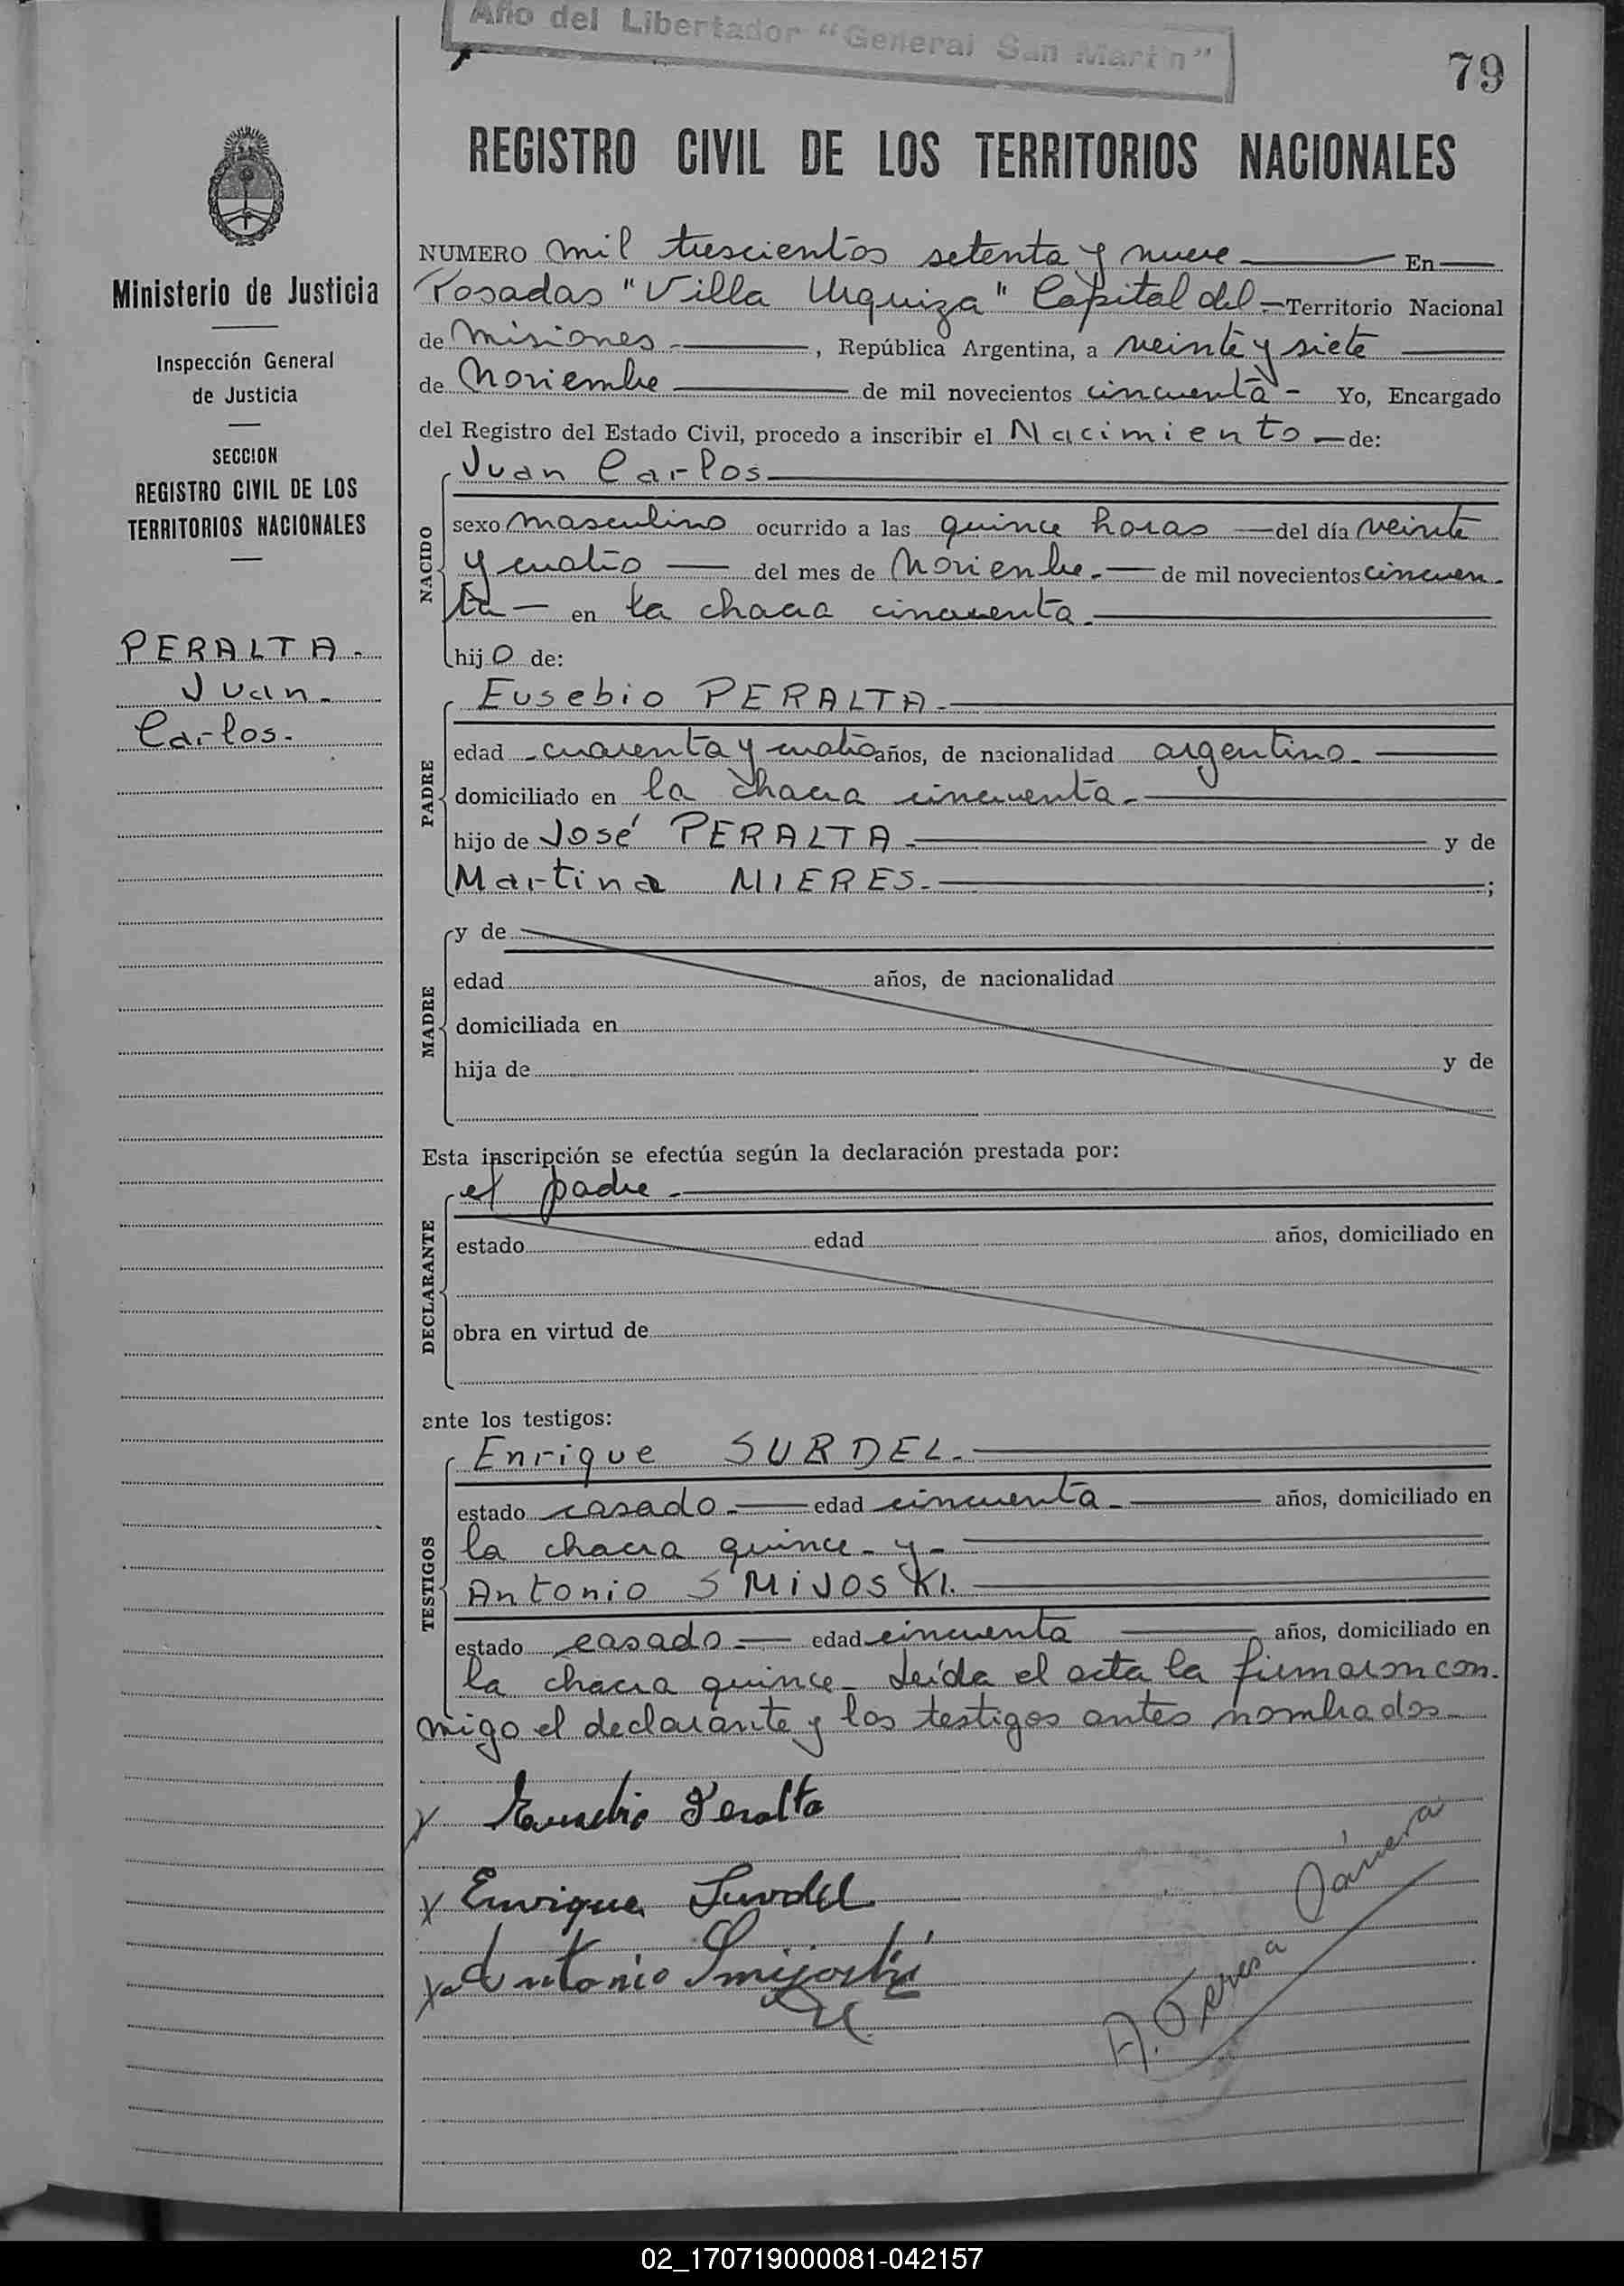 Año del Libertador "General San Martín"
79
REGISTRO CIVIL DE LOS TERRITORIOS NACIONALES
Ministerio de Justicia
Inspección General
de Justicia
SECCION
REGISTRO CIVIL DE LOS
TERRITORIOS NACIONALES
PERALTA.
Juan.
Carlos.
NUMERO mil trescientos setenta y nueve En
Posadas "Villa Urquiza" Capital del Territorio Nacional
de Misiones, República Argentina, a veinte y siete
de Noviembre de mil novecientos cincuenta - Yo, Encargado
del Registro del Estado Civil, procedo a inscribir el Nacimiento de:
NACIDO
Juan Carlos
sexo masculino ocurrido a las quince horas del día veinte
y cuatro del mes de Noviembre. de mil novecientos cincuen-
ta en la chacra cincuenta.
hijo de:
PADRE
Eusebio PERALTA.
edad cuarenta y cuatro años, de nacionalidad argentino.
domiciliado en la chacra cincuenta.
hijo de José PERALTA. y de
Martina MIERES. ;
MADRE
y de
edad años, de nacionalidad
domiciliada en
hija de y de
Esta inscripción se efectúa según la declaración prestada por:
DECLARANTE
el padre.
estado edad años, domiciliado en
obra en virtud de
ante los testigos:
TESTIGOS
Enrique SURDEL.
estado casado. edad cincuenta. años, domiciliado en
la chacra quince. y.
Antonio SMIJOSKI.
estado casado. edad cincuenta años, domiciliado en
la chacra quince. Leída el acta la firmaron con-
migo el declarante y los testigos antes nombrados.
x Eusebio Peralta
x Enrique Surdel
x Antonio Smijoski
02_170719000081-042157